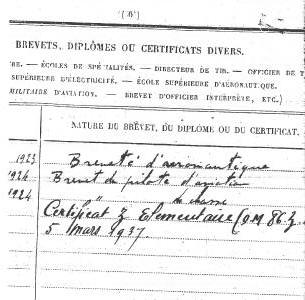 (6)
BREVETS, DIPLÔMES OU CERTIFICATS DIVERS.
RE. — ÉCOLES DE SPÉCIALITÉS. — DIRECTEUR DE TIR. — OFFICIER DE T
SUPÉRIEURE D'ÉLECTRICITÉ. — ÉCOLE SUPÉRIEURE D'AÉRONAUTIQUE.
MILITAIRE D'AVIATION. — BREVET D'OFFICIER INTERPRÈTE, ETC.)
NATURE DU BREVET, DU DIPLÔME OU DU CERTIFICAT.
1923 Breveté d'aéronautique
1924 Brevet de pilote d'aviation
1924 " de chasse
Certificat Z Elementaire (O.M. 86.Z
5 mars 1937.